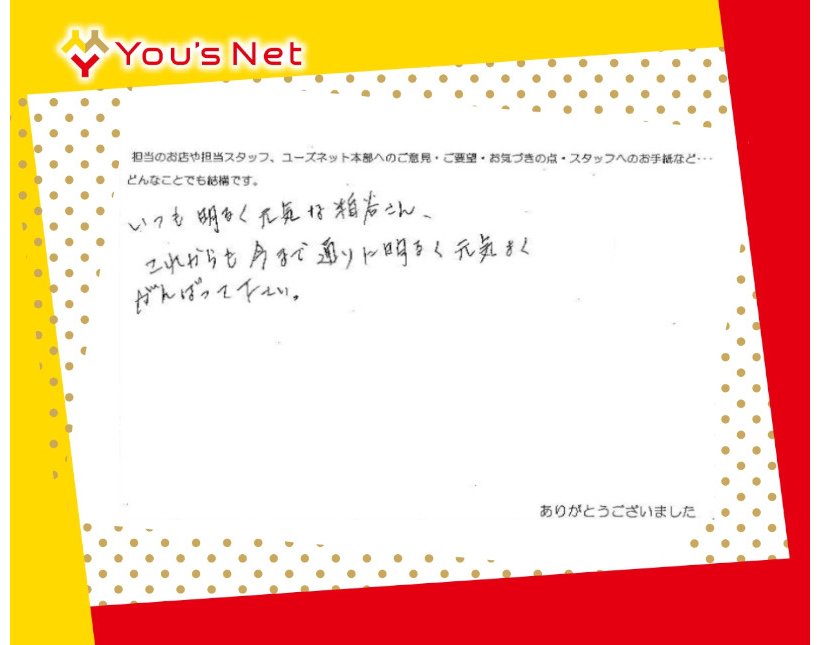 You's Net
担当のお店や担当スタッフ、ユーズネット本部へのご意見・ご要望・お気づきの点・スタッフへのお手紙など…
どんなことでも結構です。
いつも明るく元気な さん、
これからも今まで通りに明るく元気よく
がんばって下さい。
ありがとうございました